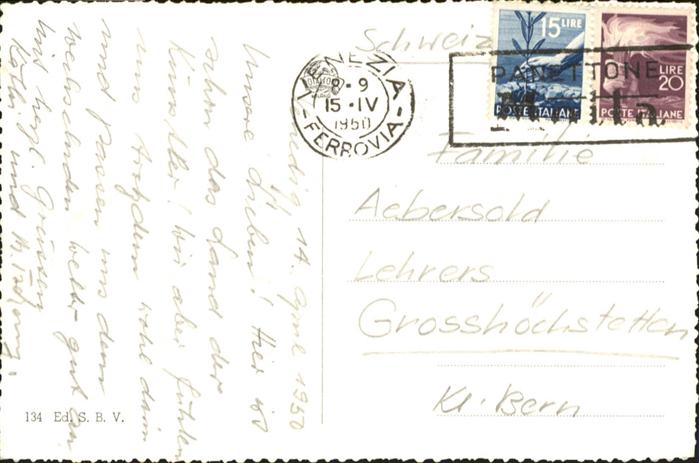 Venedig 14. April 1950
Unsere Lieben! Hier ist
schon das Land der
Künstler! Wir aber fühlen
uns trotzdem wohl darin
und passen uns dem
wechselnden Wetter gut an.
Mit herzl. Grüssen
Käthi und
Schweiz
VENEZIA
8-9
15·IV
1950
FERROVIA
15 LIRE
POSTE ITALIANE
LIRE
20
POSTE ITALIANE
PANETTONE
Familie
Aebersold
Lehrers
Grosshöchstetten
Kt. Bern
134 Ed. S. B. V.